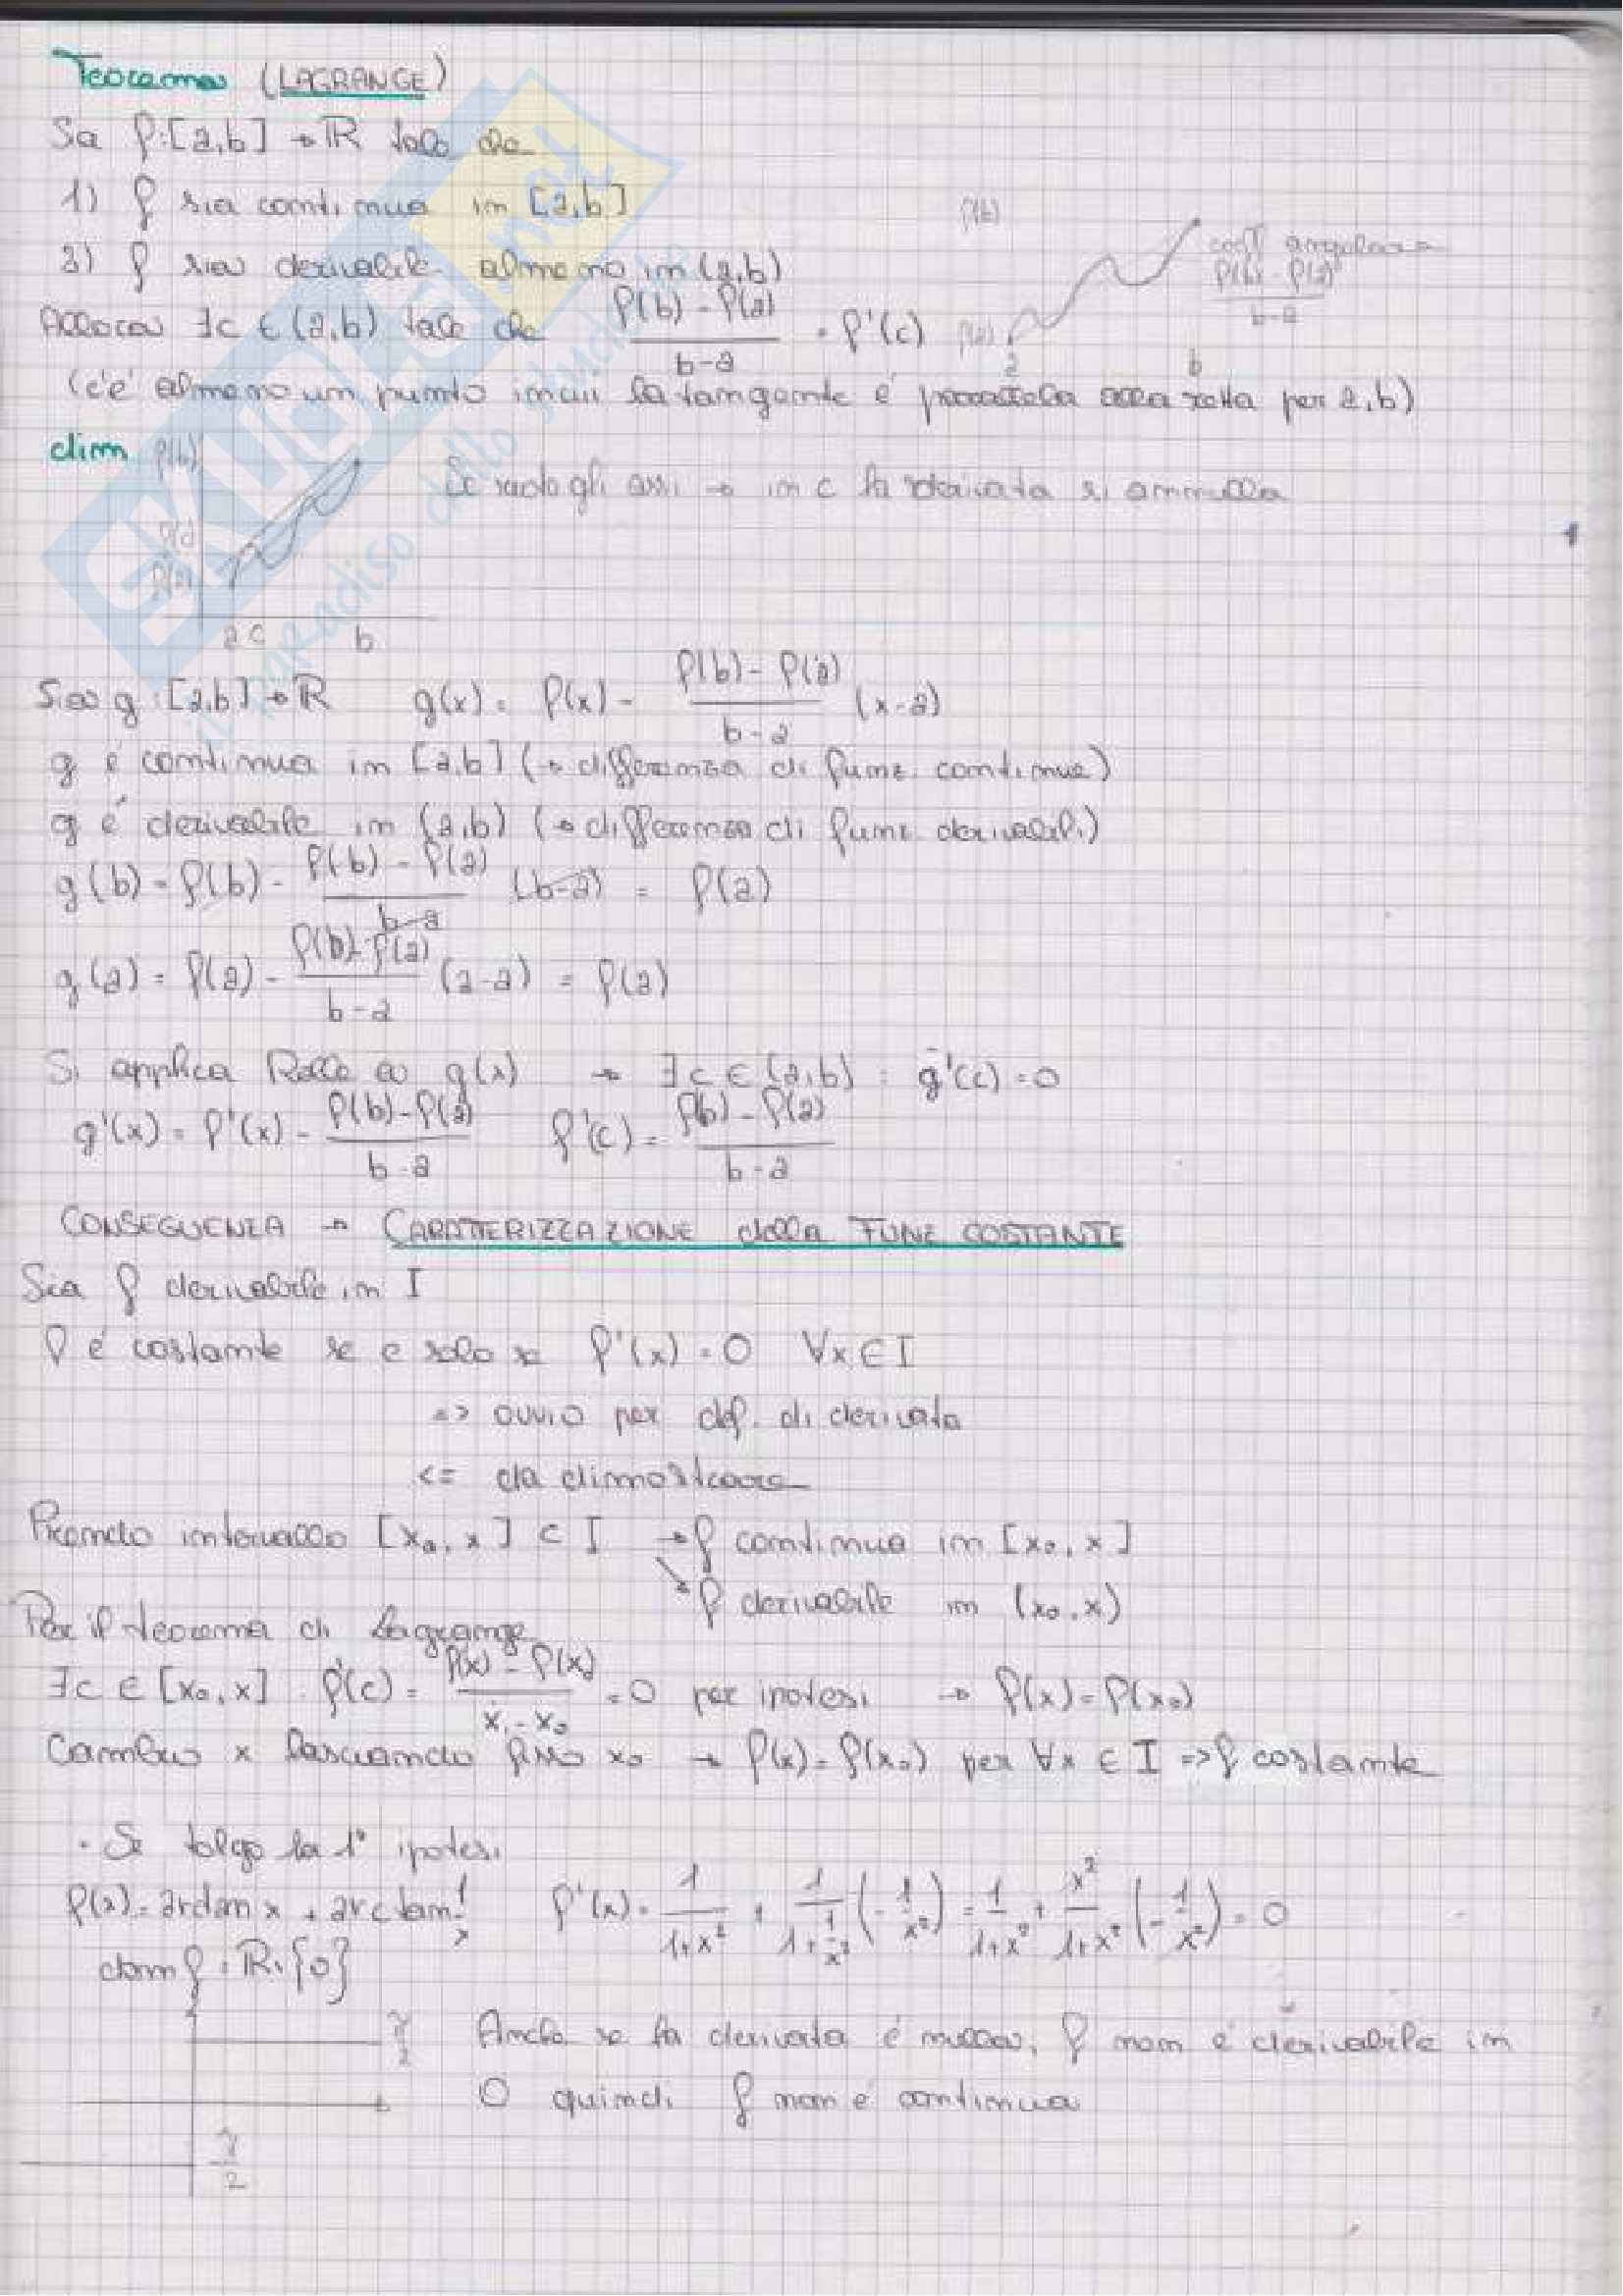 Teorema (LAGRANGE)
Sia f:[a,b] → ℝ tale che
1) f sia continua in [a,b]
2) f sia derivabile almeno in (a,b)
Allora ∃c ∈ (a,b) tale che (f(b) - f(a))/(b-a) = f'(c)
f(b)
coeff angolare
(f(b) - f(a))/(b-a)
f(a)
a b
(c'è almeno un punto in cui la tangente è parallela alla retta per a,b)
dim
f(b)
f(a)
a c b
Se ruoto gli assi → in c la derivata si annulla
Sia g:[a,b] → ℝ g(x) = f(x) - (f(b) - f(a))/(b-a) (x-a)
g è continua in [a,b] (→ differenza di funz. continue)
g è derivabile in (a,b) (→ differenza di funz derivabili)
g(b) = f(b) - (f(b) - f(a))/(b-a) (b-a) = f(a)
g(a) = f(a) - (f(b) - f(a))/(b-a) (a-a) = f(a)
Si applica Rolle a g(x) → ∃c ∈ (a,b) : g'(c) = 0
g'(x) = f'(x) - (f(b)-f(a))/(b-a) f'(c) = (f(b) - f(a))/(b-a)
CONSEGUENZA → CARATTERIZZAZIONE della FUNZ COSTANTE
Sia f derivabile in I
f è costante se e solo se f'(x) = 0 ∀x ∈ I
=> ovvio per def. di derivata
<= da dimostrare
Prendo intervallo [x₀, x] ⊂ I → f continua in [x₀, x]
↘ f derivabile in (x₀, x)
Per il teorema di Lagrange
∃c ∈ [x₀, x] : f'(c) = (f(x) - f(x₀))/(x - x₀) = 0 per ipotesi → f(x) = f(x₀)
Cambio x lasciando fisso x₀ → f(x) = f(x₀) per ∀x ∈ I => f costante
· Se tolgo la 1° ipotesi
f(x) = arctan x + arctan 1/x f'(x) = 1/(1+x²) + 1/(1+1/x²) (-1/x²) = 1/(1+x²) + x²/(1+x²) (-1/x²) = 0
dom f : ℝ \ {0}
π/2
Anche se la derivata è nulla, f non è derivabile in
0 quindi f non è continua
-π/2
SKUOLA.net
il paradiso dello studente